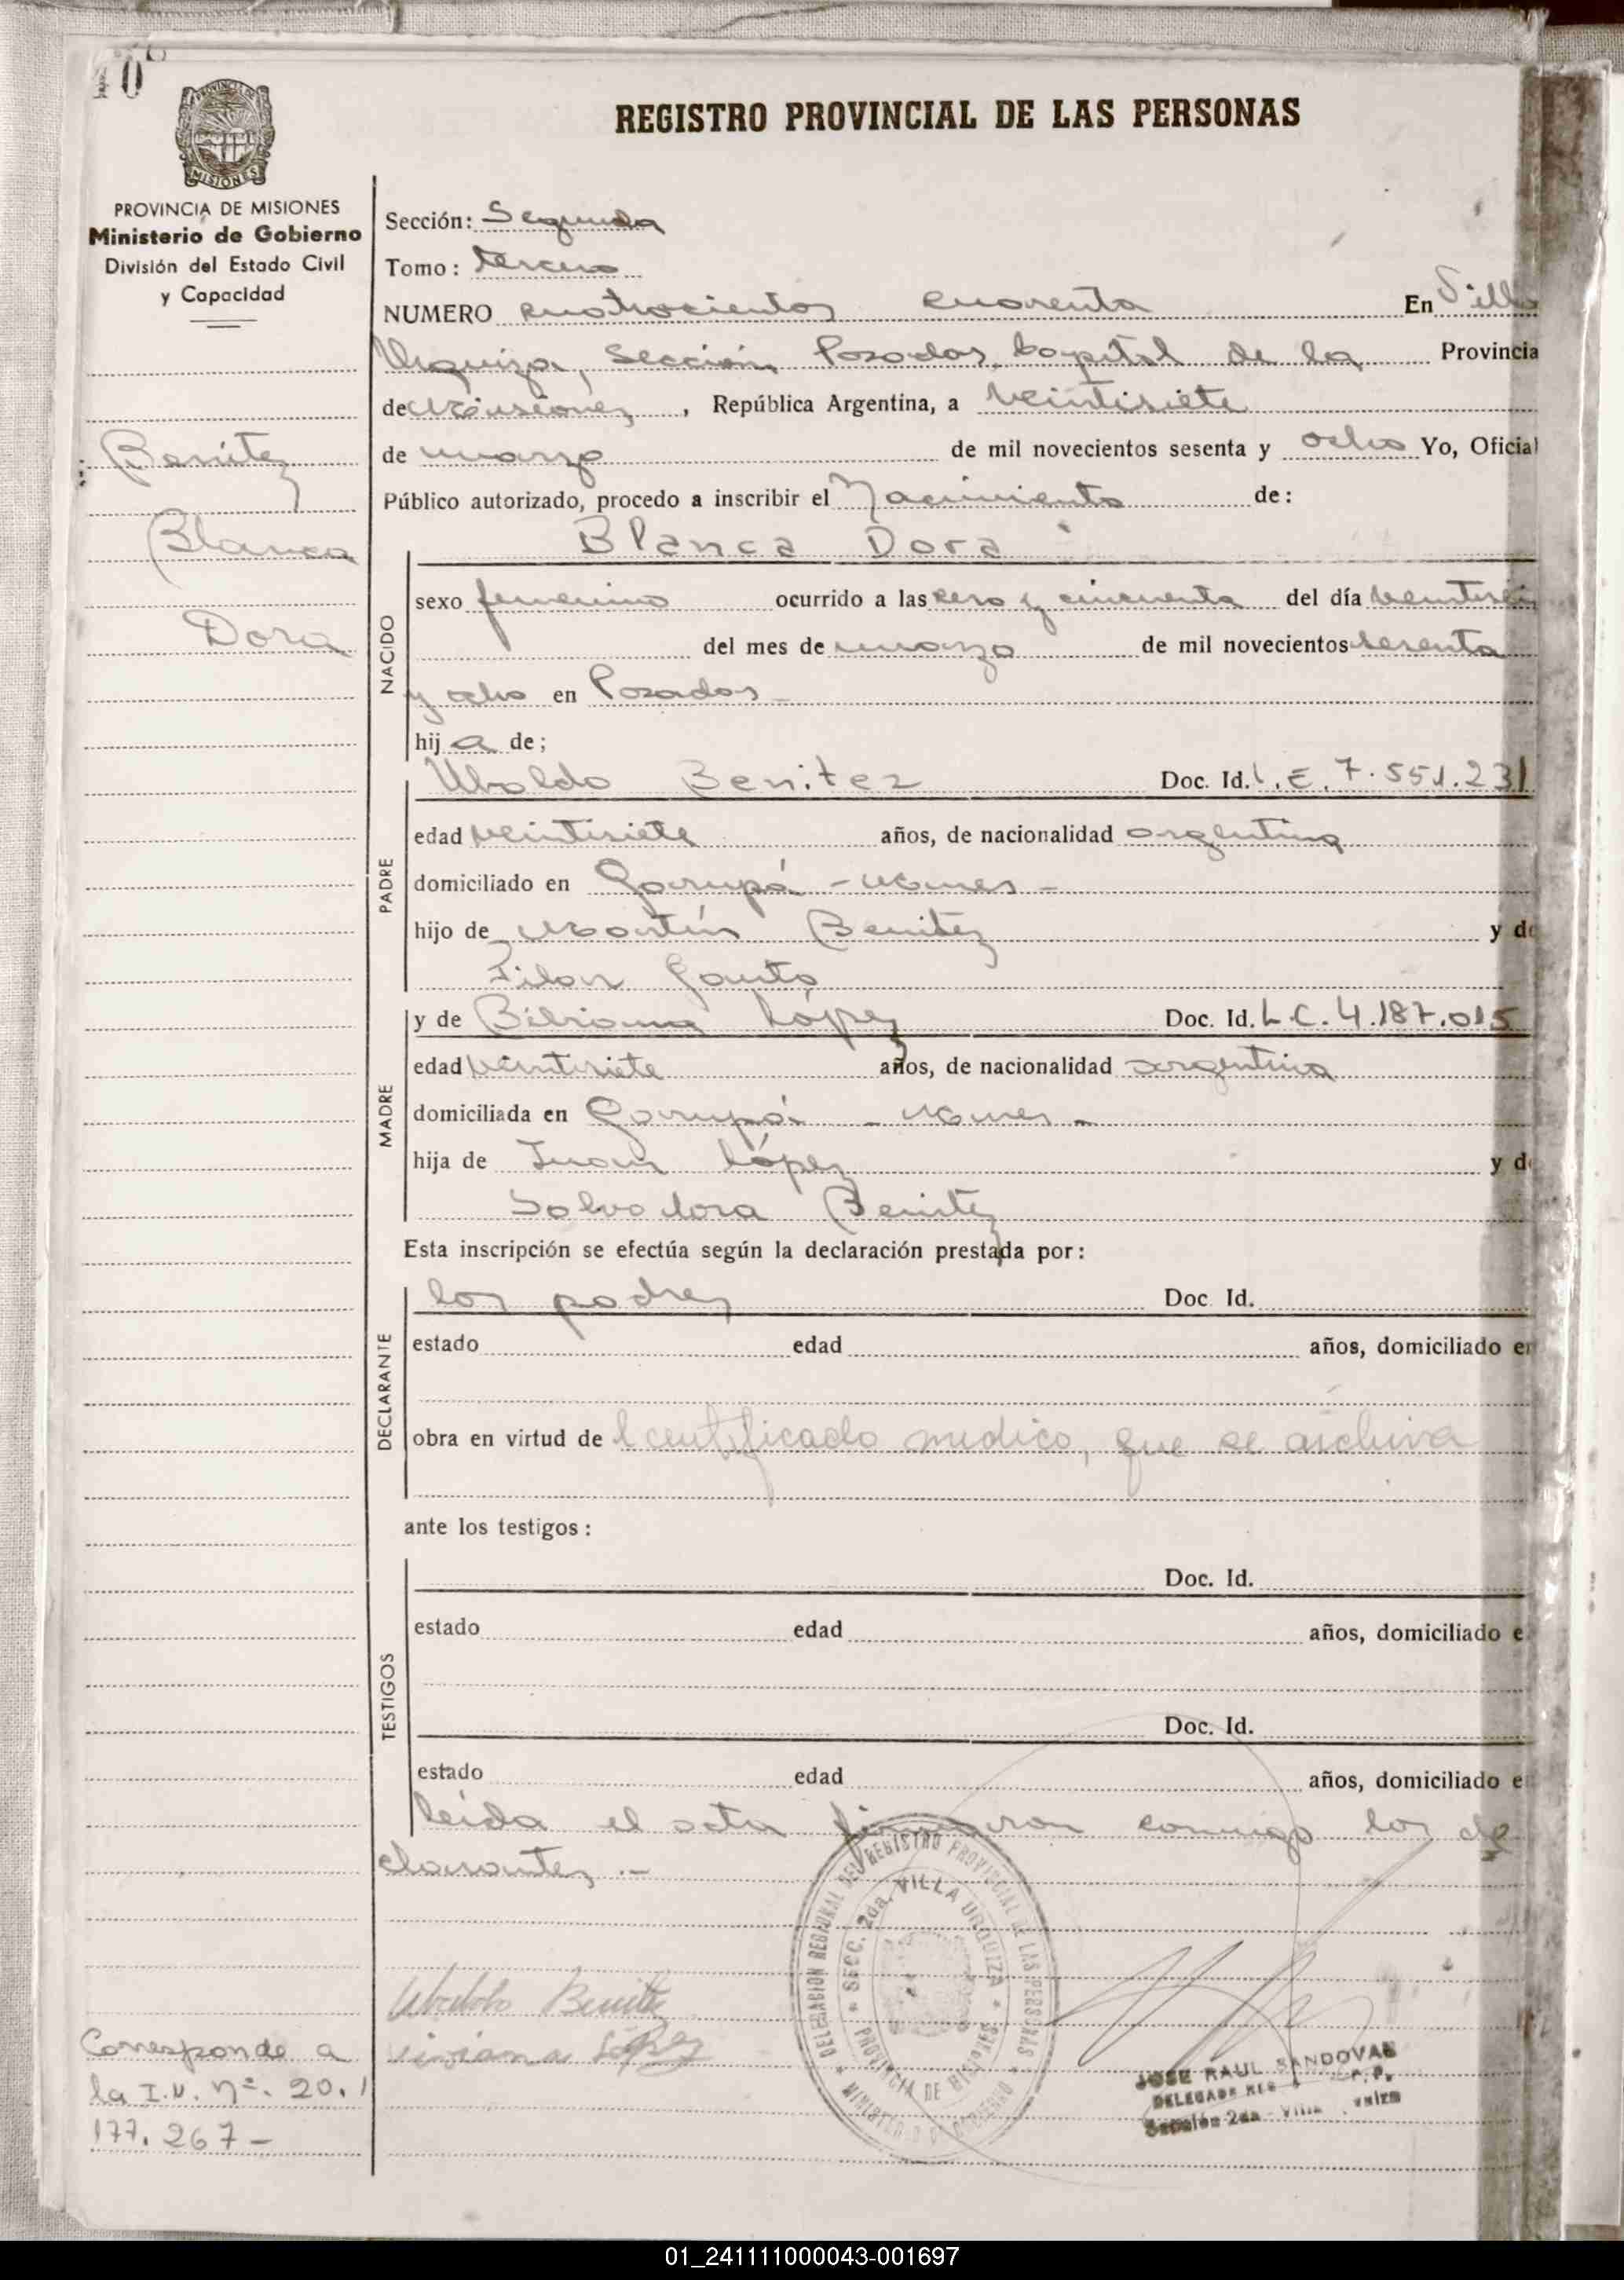 REGISTRO PROVINCIAL DE LAS PERSONAS
MISIONES
PROVINCIA DE MISIONES
Ministerio de Gobierno
División del Estado Civil
y Capacidad
Benitez
Blanca
Dora
Corresponde a
la I.N. nº. 20.
177.267 -
Sección: Segunda
Tomo: tercero
NUMERO cuatrocientos cuarenta En Villa
Urquiza, Sección Posadas, Capital de la Provincia
de Misiones, República Argentina, a veintisiete
de marzo de mil novecientos sesenta y ocho Yo, Oficial
Público autorizado, procedo a inscribir el Nacimiento de:
Blanca Dora
NACIDO
sexo femenino ocurrido a las cero y cincuenta del día
del mes de marzo de mil novecientos sesenta
y ocho en Posadas -
hija de;
PADRE
Ubaldo Benitez Doc. Id. L.E. 7.551.231
edad veintisiete años, de nacionalidad argentina
domiciliado en Garupá - Mnes -
hijo de Martín Benitez y de
Pilar
MADRE
y de Bibiana López Doc. Id. L.C. 4.187.015
edad veintisiete años, de nacionalidad argentina
domiciliada en Garupá - Mnes -
hija de Juan López y de
Salvadora Benitez
Esta inscripción se efectúa según la declaración prestada por:
DECLARANTE
los padres Doc. Id.
estado edad años, domiciliado en
obra en virtud de l certificado medico, que se archiva
ante los testigos:
TESTIGOS
Doc. Id.
estado edad años, domiciliado e
Doc. Id.
estado edad años, domiciliado e
leida el acta firmaron conmigo los de
clarantes.-
Ubaldo Benitez
Viviana López
DELEGACION REGIONAL DEL REGISTRO PROVINCIAL DE LAS PERSONAS
SECC. 2da. VILLA URQUIZA
PROVINCIA DE MISIONES
MINISTERIO DE GOBIERNO
JOSE RAUL SANDOVAL
DELEGADO
Sección 2da - Villa
01_241111000043-001697